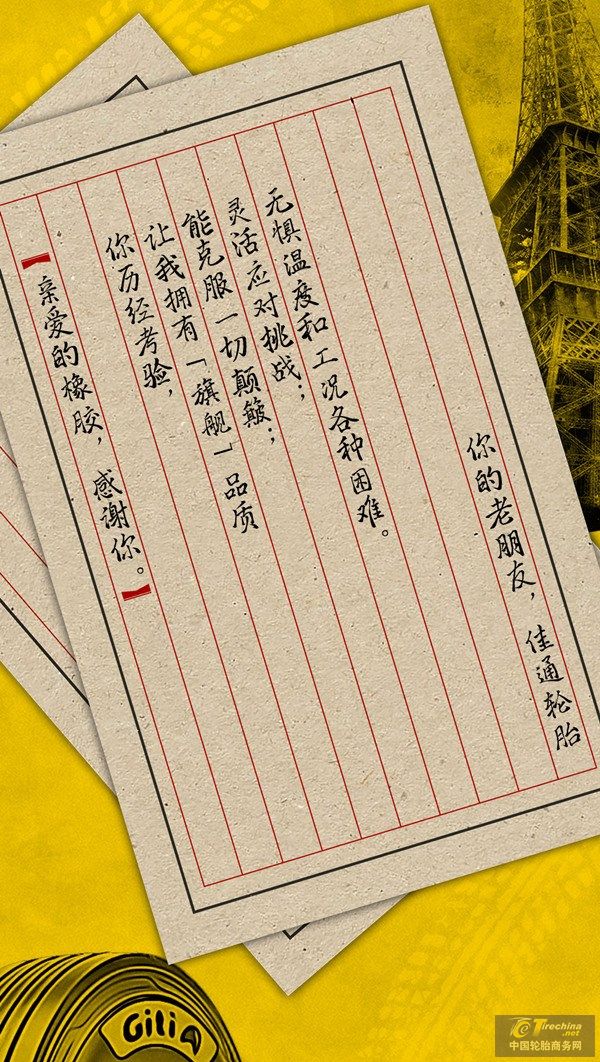 【亲爱的橡胶，感谢你。】
你历经考验，
让我拥有「旗舰」品质
能克服一切颠簸；
灵活应对挑战；
无惧温度和工况各种困难。
你的老朋友，佳通轮胎
Giti
Tirechina.net
中国轮胎商务网